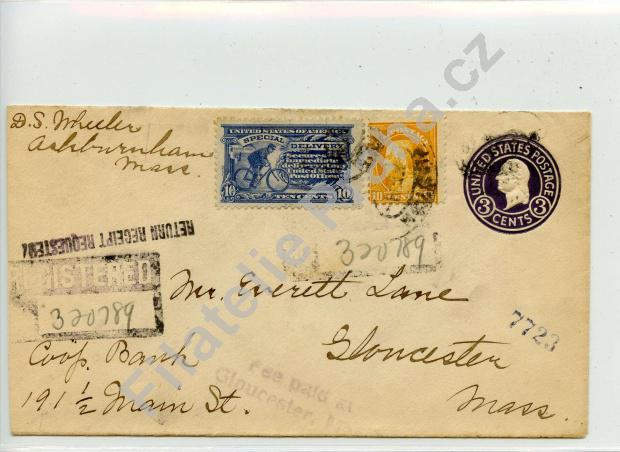 D. S. Wheeler
Ashburnham
Mass.
UNITED STATES OF AMERICA
SPECIAL DELIVERY
Secures
Immediate
delivery at a
United States
Post Office
10 TEN CENTS 10
UNITED STATES POSTAGE
3 CENTS 3
RETURN RECEIPT REQUESTED
REGISTERED
320789
320789
Mr. Everett Lane
7723
Coop. Bank
Gloucester
191 1/2 Main St.
Mass.
Fee paid at
Gloucester,
Filatelie Praha.cz